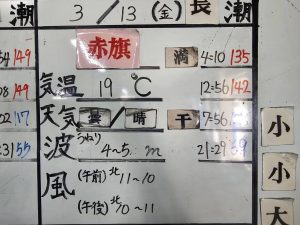 3 / 13 (金) 長 潮
潮
54 149
赤旗
満 4:10 135
08 149
気温 19 ℃
12:56 142
02 117
天気 曇 / 晴
干 7:56
23:31 55
波 うねり 4~5 m
21:29 59
風 (午前) 北 11~10
(午後) 北 10~11
小
小
大